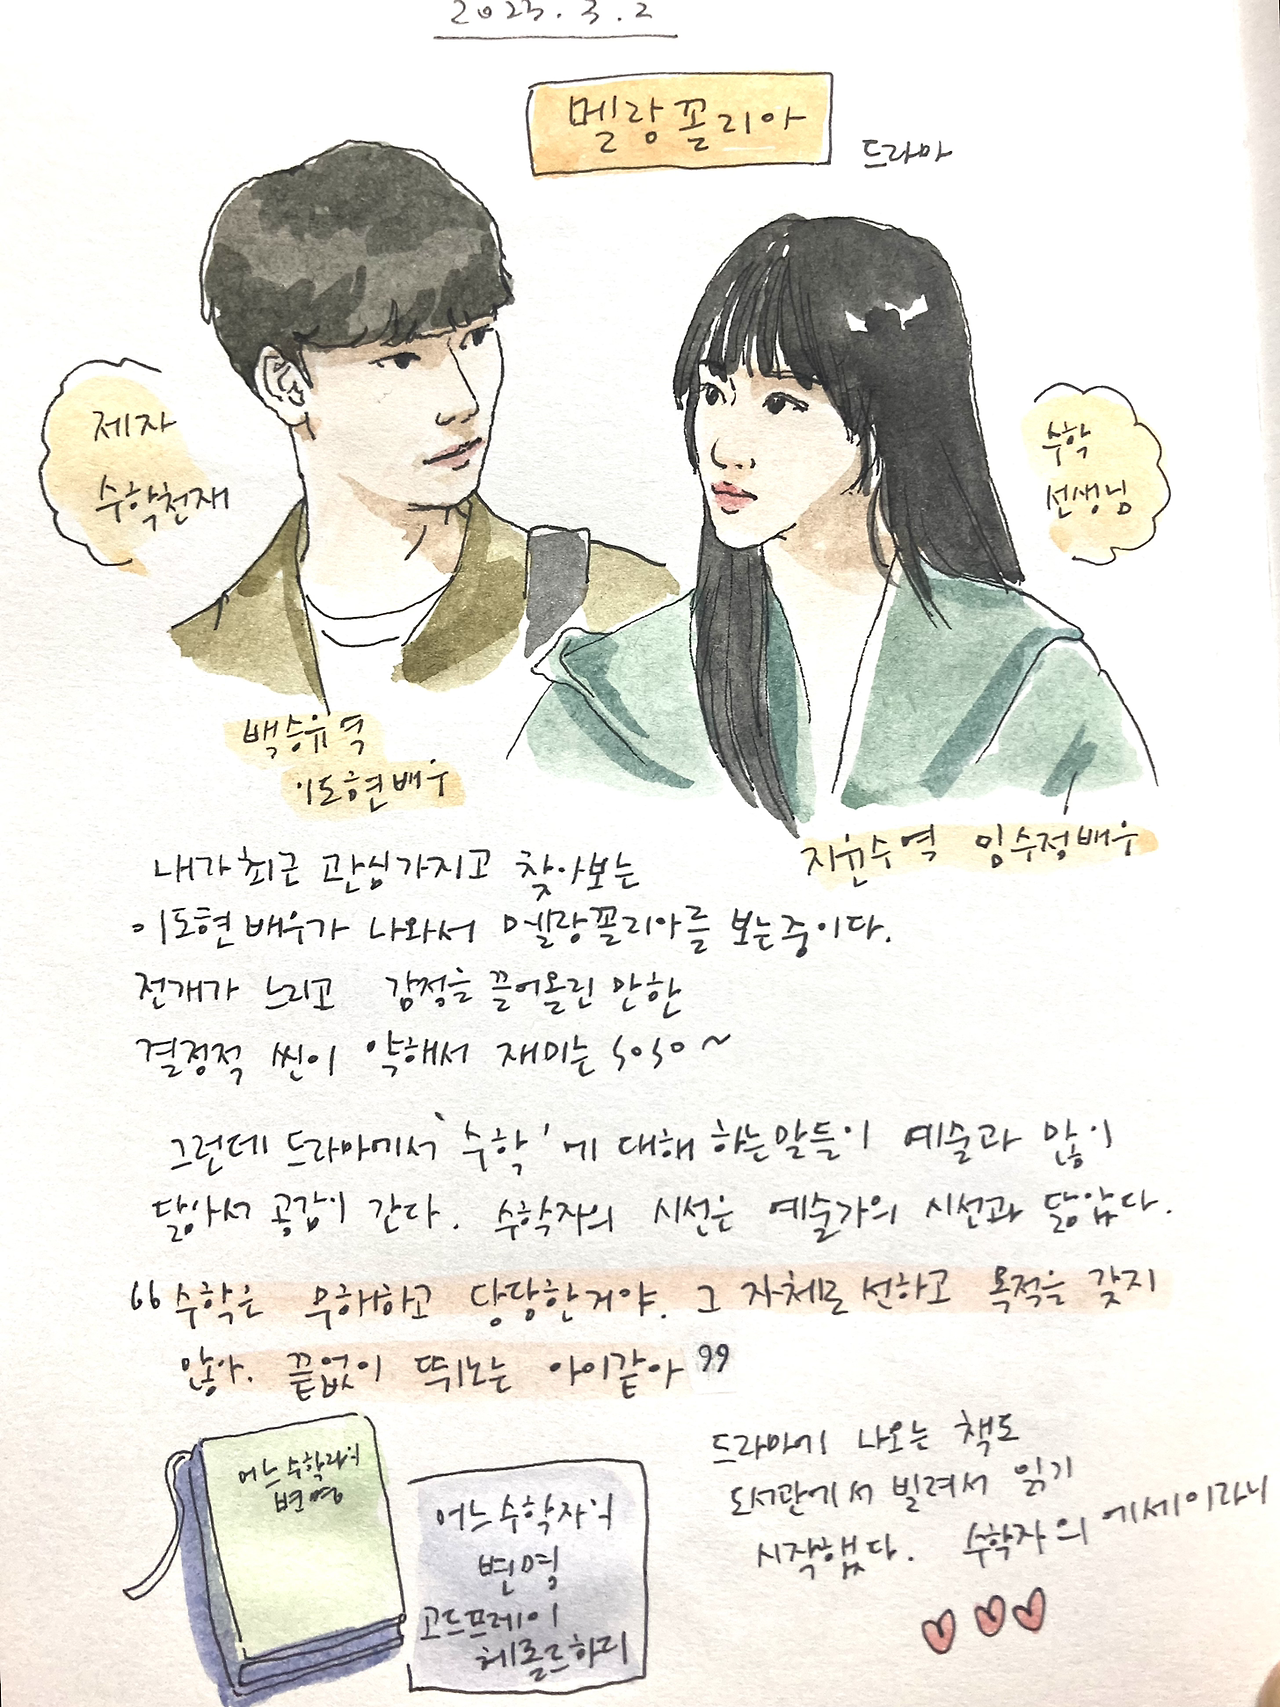 2023.3.2
멜랑꼴리아
드라마
제자
수학천재
수학
선생님
백승유역
이도현배우
지윤수역 임수정배우
내가 최근 관심가지고 찾아보는
이도현 배우가 나와서 멜랑꼴리아를 보는중이다.
전개가 느리고 감정을 끌어올린 만한
결정적 씬이 약해서 재미는 soso~
그런데 드라마에서 '수학'에 대해 하는말들이 예술과 많이
닮아서 공감이 간다. 수학자의 시선은 예술가의 시선과 닮았다.
“수학은 무해하고 당당한거야. 그 자체로 선하고 목적을 갖지
않아. 끝없이 뛰노는 아이같아”
어느수학자의
변명
어느수학자의
변명
고드프레이
헤롤드하디
드라마에 나오는 책도
도서관에서 빌려서 읽기
시작했다. 수학자의 에세이라니